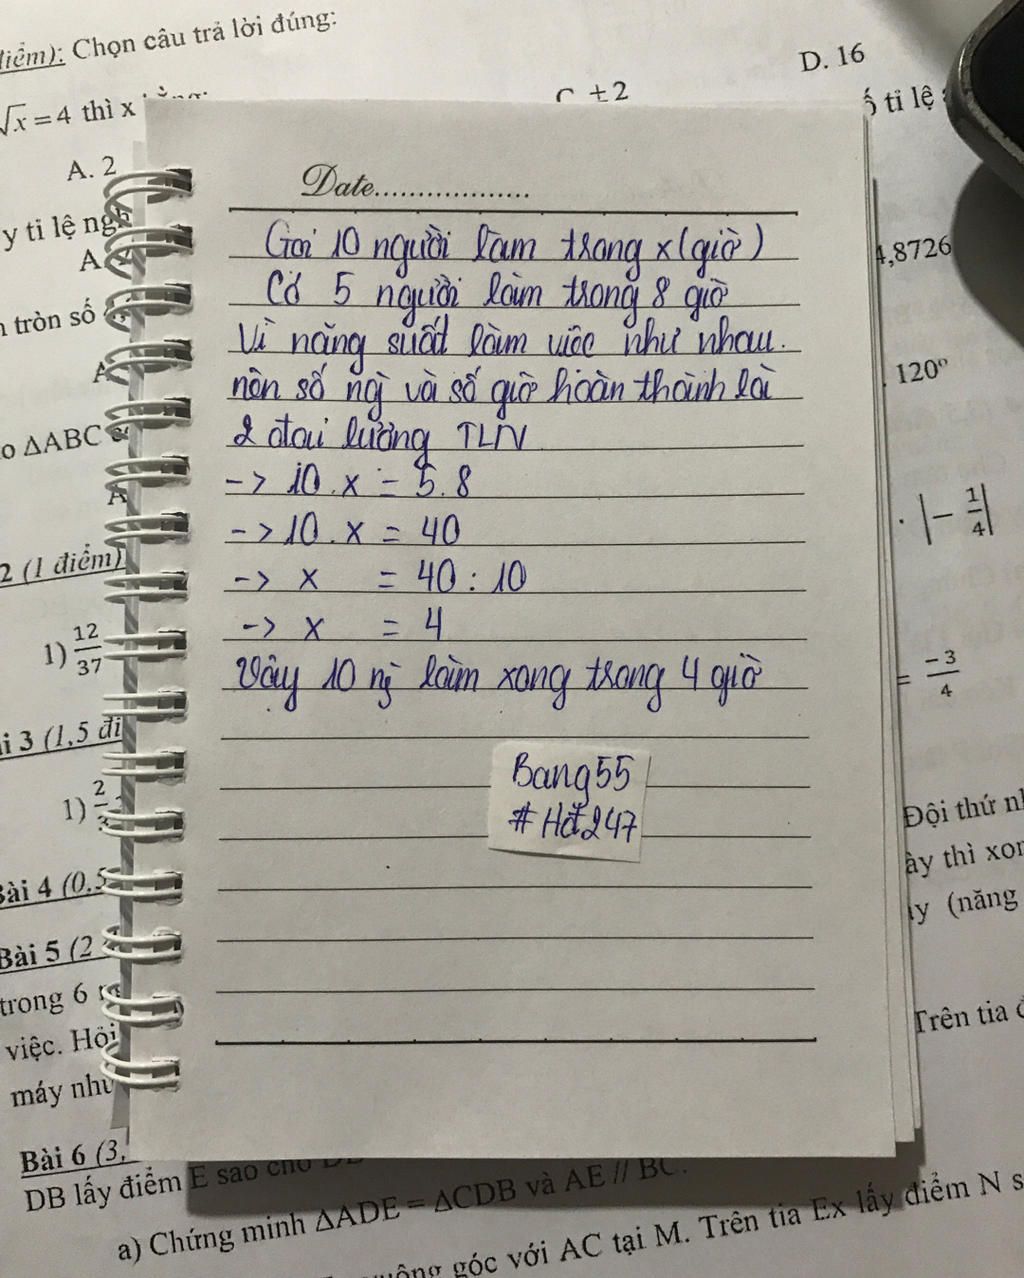 điểm): Chọn câu trả lời đúng:
√x = 4 thì x
A. 2
± 2
D. 16
y tỉ lệ
ố tỉ lệ
A
tròn số
4,8726
A
120º
o ΔABC
A
. |− 1/4|
2 (1 điểm)
1) 12/37
= −3/4
i 3 (1,5 đi
1) 2
Bài 4 (0.5
Đội thứ
Bài 5 (2
ày thì xon
trong 6
y (năng
việc. Hỏi
Trên tia
máy như
Bài 6 (3,
DB lấy điểm E sao cho
a) Chứng minh ΔADE = ΔCDB và AE // BC.
uông góc với AC tại M. Trên tia Ex lấy điểm N s
Date..................
Gọi 10 người làm trong x (giờ)
Có 5 người làm trong 8 giờ
Vì năng suất làm việc như nhau.
nên số ng` và số giờ hoàn thành là
2 đại lượng TLN
-> 10 . x = 5 . 8
-> 10 . x = 40
-> x = 40 : 10
-> x = 4
Vậy 10 ng` làm xong trong 4 giờ
Bang55
#Hđ247